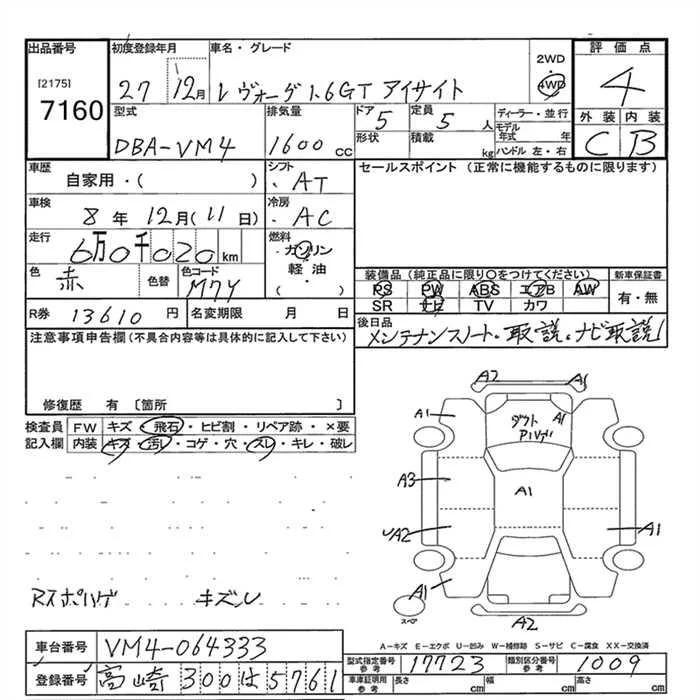 出品番号 [2175] 7160
初度登録年月 27 12月
車名・グレード レヴォーグ 1.6GT アイサイト
2WD 4WD
評価点 4
型式 DBA-VM4
排気量 1600 cc
ドア 5
定員 5 人
形状
積載 kg
ディーラー・並行
モデル年式 年
ハンドル 左・右
外装 内装
C B
車歴 自家用・( )
シフト ・AT
セールスポイント (正常に機能するものに限ります)
車検 8 年 12月 (11 日)
冷房 ・AC
走行 6万0千020 km
燃料 ガソリン
軽油・
( )
色 赤
色替
色コード M7Y
装備品(純正品に限り○をつけてください)
新車保証書
PS PW ABS エアB AW
SR ナビ TV カワ
有・無
R券 13610 円
名変期限 月 日
後日品 メンテナンスノート・取説・ナビ取説
注意事項申告欄(不具合内容等は具体的に記入して下さい)
修復歴 有 〔箇所 〕
検査員記入欄
FW キズ・飛石・ヒビ割・リペア跡・×要
内装 キズ・汚れ・コゲ・穴・スレ・キレ・破レ
A2 A1
A1 ダクト A1
A3 A1
UA2 A1
A1
スペア
A2
キズシ
A-キズ E-エクボ U-凹み W-補修跡 S-サビ C-腐食 XX-交換済
車台番号 VM4-064333
型式指定番号 参考 17723
類別区分番号 参考 1009
登録番号 高崎 300 は 5761
車庫証明用 参考 長さ cm 幅 cm 高さ cm